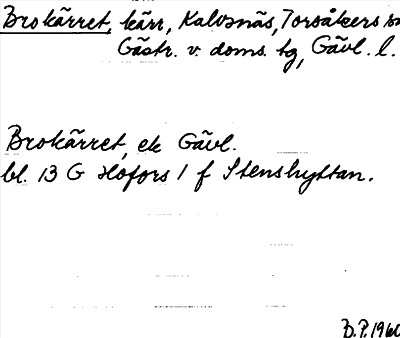 Brokärret, kärr, Kalvsnäs, Torsåkers sn
Gästr. v. doms. tg, Gävl. l.
Brokärret, ek Gävl.
bl. 13 G Hofors 1 f Stenshyttan.
B.P. 1960